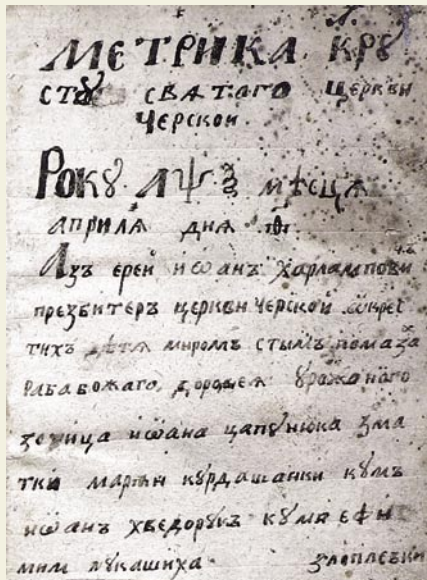 л.
МЕТРИКА КРꙋ
СТꙋ СВАТАГО ЦЕРКВИ
ЧЕРСКОИ.
РОКꙋ АѰѮ МѢСЦА
АПРИЛА ДНЯ ѲІ
Азъ ерей иѡанъ харлампови ч.
презбитеръ церкви черской ѡкрес
тихъ дѣтя миромъ стымъ помаза
раба божаго дорофея ꙋрожоного
зотица иѡана цапꙋнюка зма
тки мартии кꙋрдашанки кꙋмъ
иѡанъ хведорꙋкъ кꙋма ефи
мим лꙋкашиха